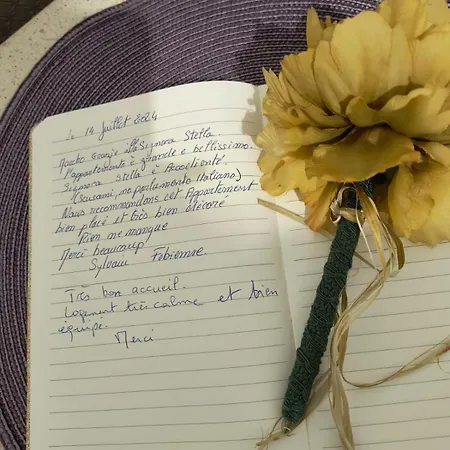 Le 14 Juillet 2024
Moocho Granzie alla Signora Stella.
l'appartemento è grande e bellissimo.
Signora Stella è Accogliente.
(Scusami, me parlamento Italiano)
Nous recommandons cet Appartement
bien placé et très bien décoré
Rien ne manque
Merci beaucoup
Sylvain Fabienne.
Très bon accueil.
Logement très calme et bien
équipé.
Merci